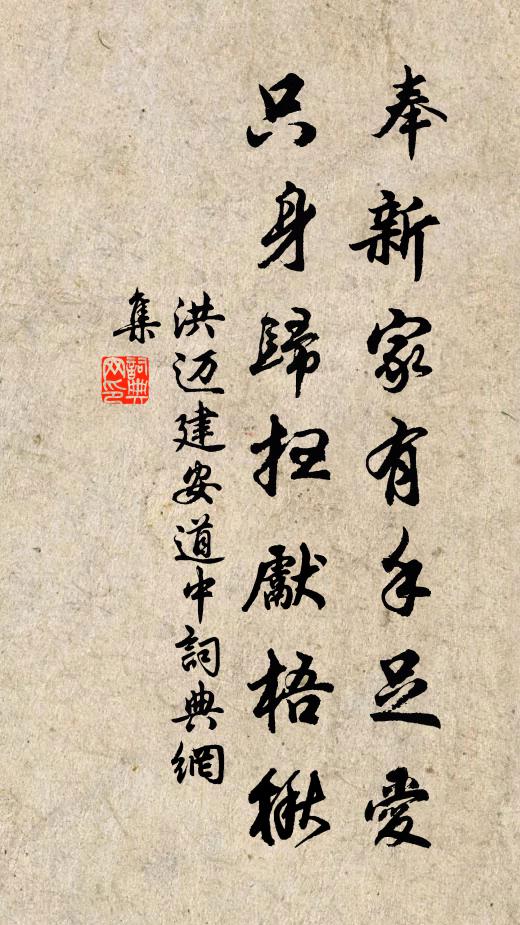 奉新家有手足愛
只身歸扫獻梧楸
洪迈建安道中詞典網
集
詞典
网印